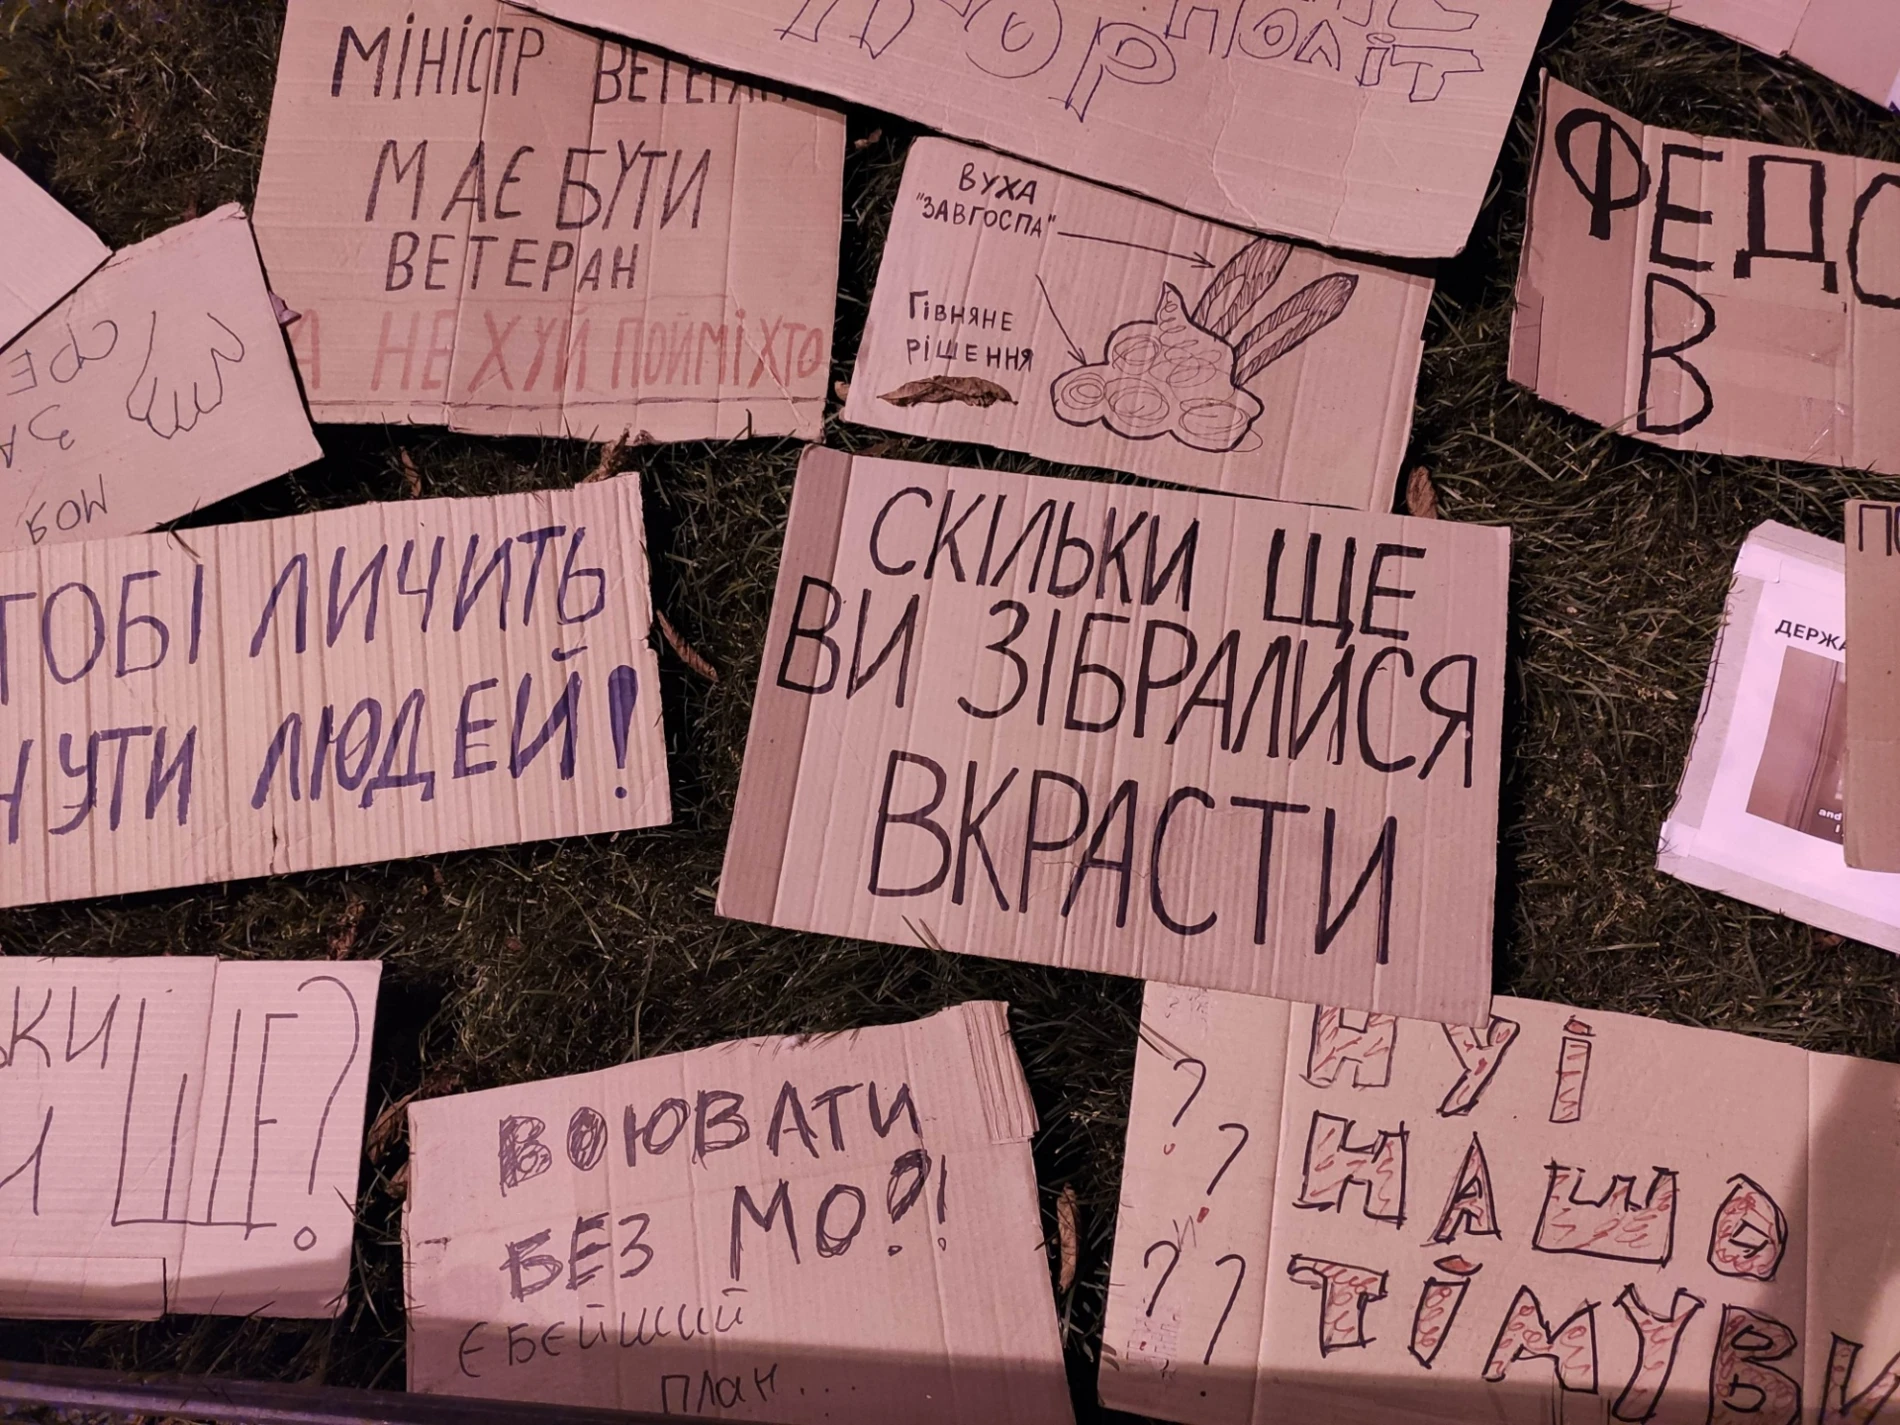 МІНІСТР ВЕТЕРАН
МАЄ БУТИ
ВЕТЕРАН
А НЕ ХУЙ ПОЙМІ ХТО
ПОЛІТ
ВУХА
"ЗАВГОСПА"
ГІВНЯНЕ
РІШЕННЯ
ФЕДО
В
ЗА
МОЯ
ТОБІ ЛИЧИТЬ
НУТИ ЛЮДЕЙ!
СКІЛЬКИ ЩЕ
ВИ ЗІБРАЛИСЯ
ВКРАСТИ
ДЕРЖА
and
I
ЬКИ
И ЩЕ?
ВОЮВАТИ
БЕЗ МО?!
ЄБЕЙШИЙ
план...
НУ І
? НАШО
? ? ? ТІМУВИ